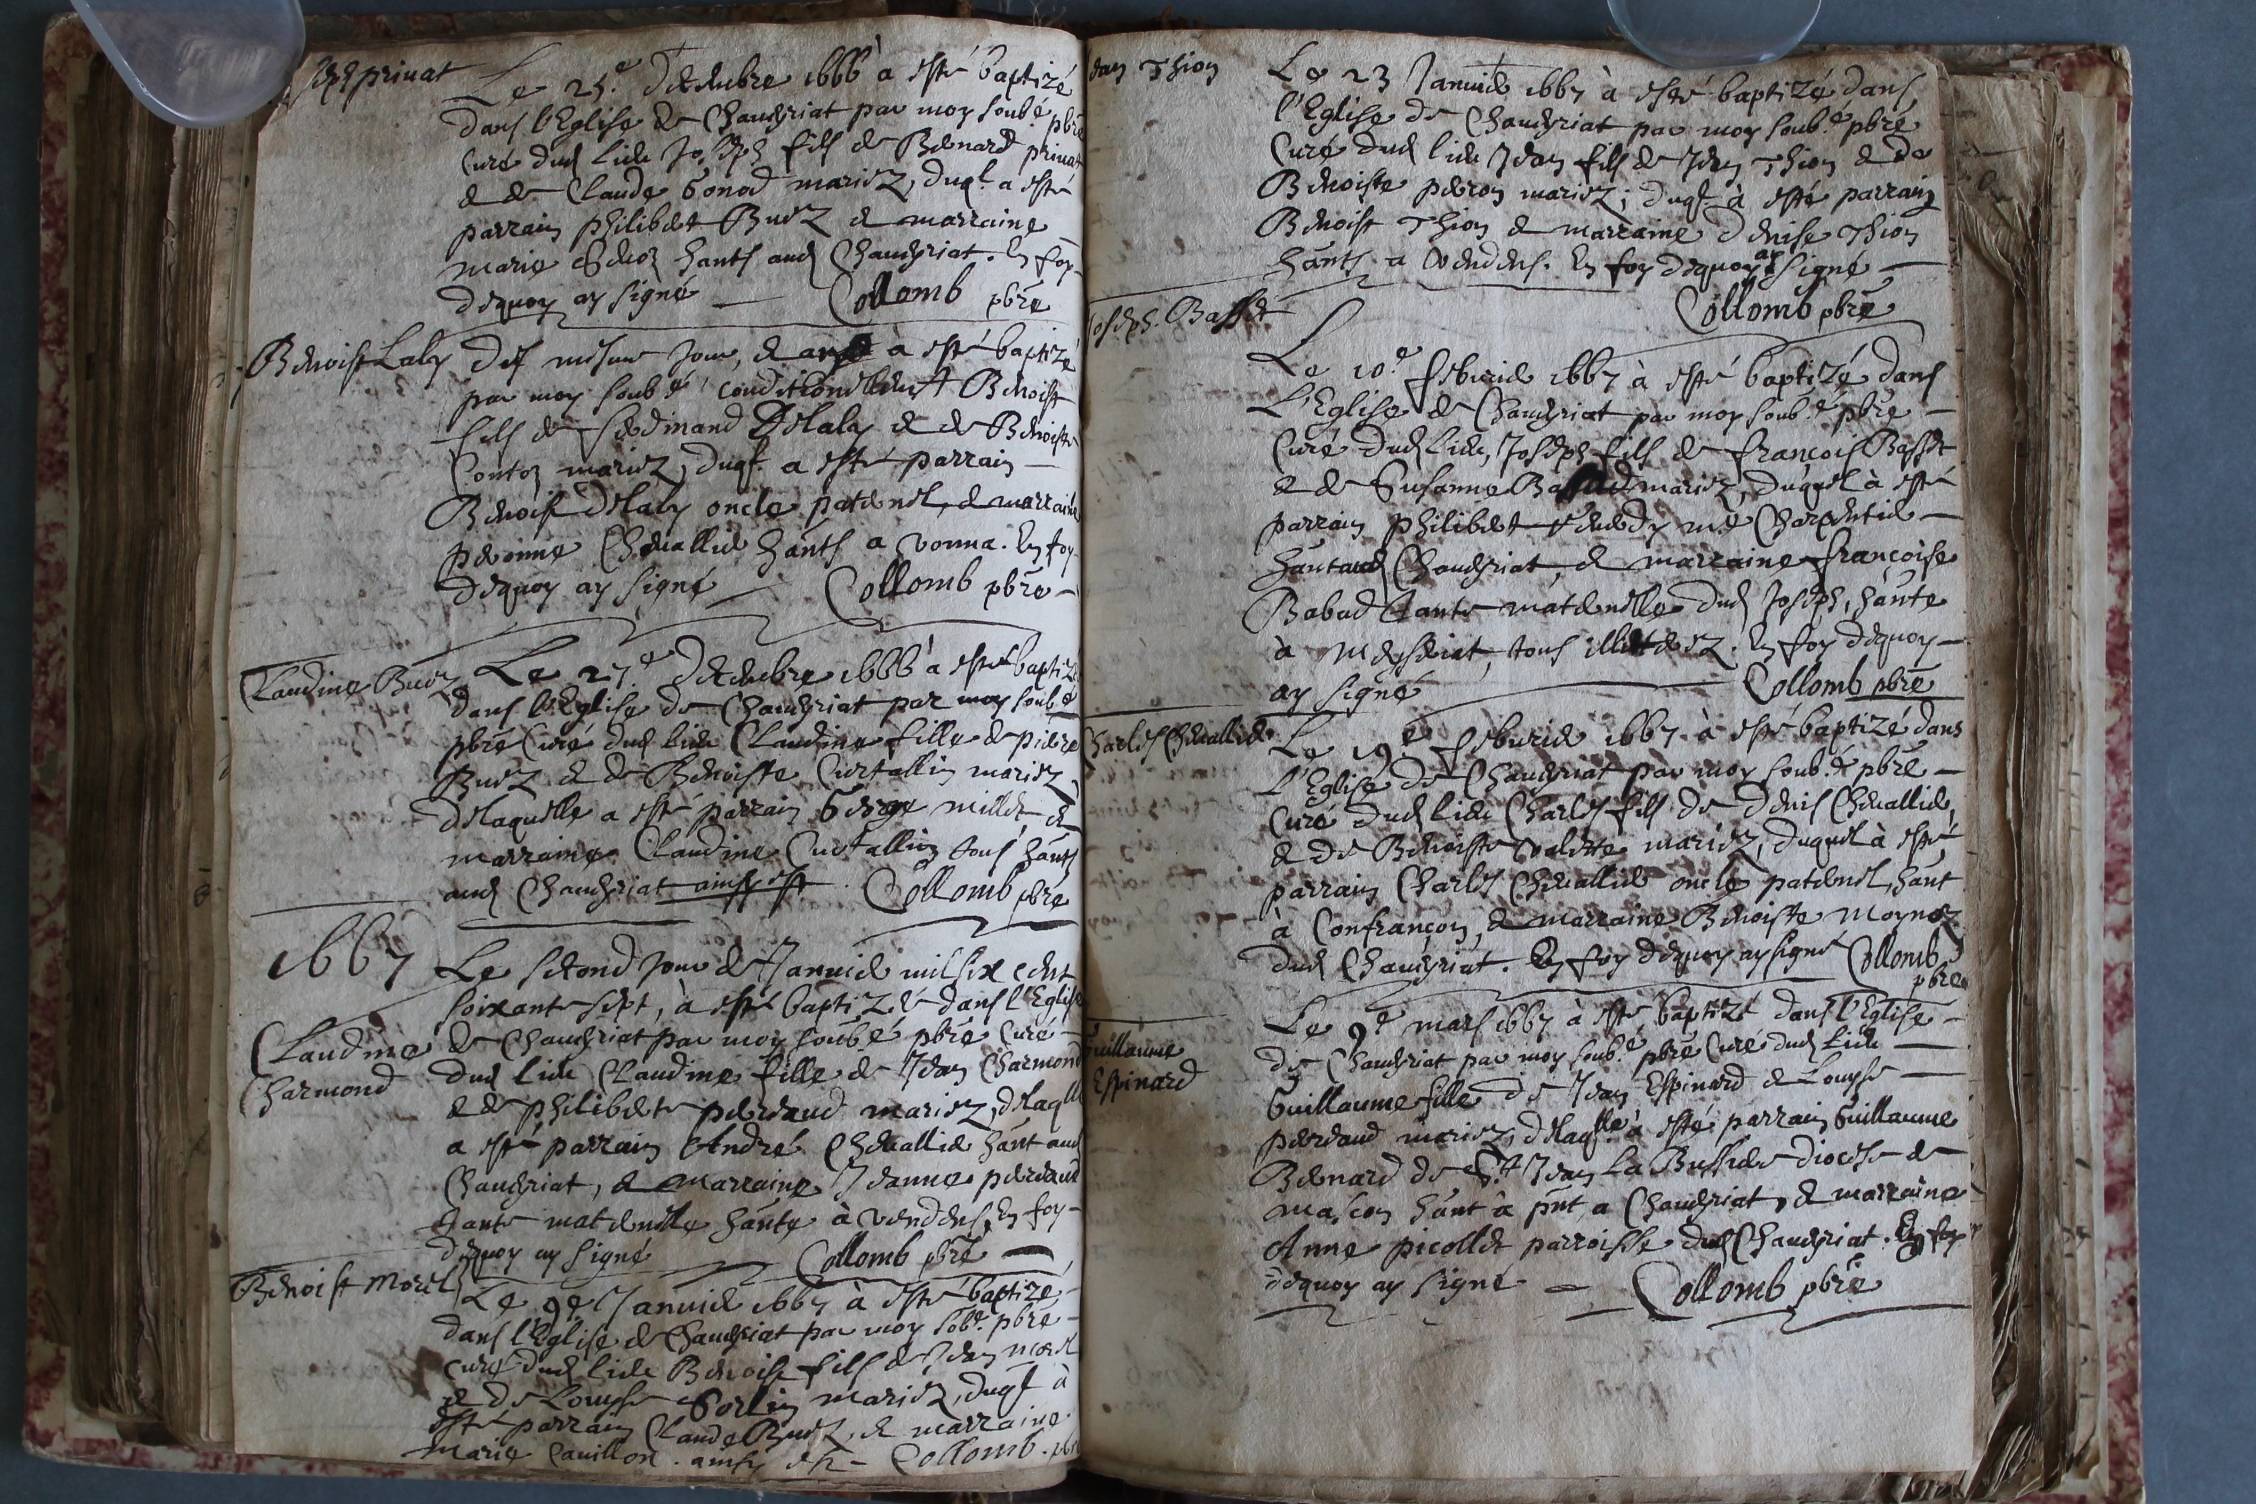 Joseph privat
Le 25.e decembre 1666 à esté baptizé
dans l'Eglise de Chaveyriat par moy soubé pbre
Curé dud lieu Joseph fils de Bernard privat
& de Claude Gonod mariez, duql a esté
parrain philibert Buez & marraine
marie hants aud Chaveyriat. En foy
dequoy ay signé — Collomb pbre
Benoist Laly
des mesme jour, & an à esté baptizé
par moy soubé conditionellement Benoist
fils de ferdinand Delaly & de Benoiste
Contoz mariez, duql a esté parrain
Benoist delaly oncle paternel, & marraine
peronne Chevallier hants a vonna. En foy
dequoy ay signé Collomb pbre
Claudine Buez
Le 27.e decembre 1666 à esté baptizé
dans l'Eglise de Chaveyriat par moy soubé
pbre Curé dud lieu Claudine fille de pierre
Buez & de Benoiste Curtallin mariez,
delaquelle a esté parrain George millet &
marraine Claudine Curtallin tous hants
aud Chaveyriat ainsy est. Collomb pbre
1667
Le second jour de Janvier mil six cent
soixante sept, à esté baptizée dans l'Eglise
Claudine
de Chaveyriat par moy soubé pbre Curé
Charmond
dud lieu Claudine fille de Jean Charmond
& de philiberte perdaud mariez, delaqlle
a esté parrain André Chevallier hant aud
Chaveyriat, & marraine Jeanne perdaud
tante maternelle hante à vendens, En foy
dequoy ay signé Collomb pbre
Benoist Morel
Le 9e Janvier 1667 à esté baptizé
dans l'Eglise de Chaveyriat par moy sobé. pbre
curé dud lieu Benoist fils de Jean morel
& de Louyse Gorlin mariez, duql à
esté parrain Claude Buez, & marraine
Marie Cavillon. ainsy est — Collomb. pbre
Jean Thion
Le 23 Janvier 1667 à esté baptizé dans
l'Eglise de Chaveyriat par moy soub.é pbre
Curé dud lieu Jean fils de Jean Thion & de
Benoiste peron mariez; duql à esté parrain
Benoist Thion & marraine denise Thion
hants a vendens. En foy dequoy ay signé —
Collomb pbre
Joseph. Basset
Le 10.e febvrier 1667 à esté baptizé dans
L'Eglise de Chaveyriat par moy soub.é pbre —
Curé dud lieu, Joseph fils de françois Basset
& de Susanne mariez, duquel à esté
parrain philibert me Charpentier —
hant aud Chaveyriat, & marraine françoise
Babad tante maternelle dud Joseph, hante
à Mezeriat, tous illitterez. En foy dequoy —
ay signé Collomb pbre
Charles Chevallier
Le 19e febvrier 1667 à esté baptizé dans
L'Eglise de Chaveyriat par moy soub.é pbre —
Curé dud lieu Charles fils de denis Chevallier,
& de Benoiste valette mariez, duquel à esté
parrain Charles Chevallier oncle paternel, hant
à Confrançon, & marraine Benoiste Moynoz
dud Chaveyriat. En foy dequoy ay signé Collomb
pbre
Le 9e mars 1667 à esté baptizé dans l'Eglise —
de Chaveyriat par moy soub.é pbre Curé dud lieu
Guillaume
Espinard
Guillaume fille de Jean Espinard & Louyse —
perdaud mariez, delaqlle à esté parrain Guillaume
Bernard de St Jean La Bussiere diocese de
mascon hant à pnt, a Chaveyriat, & marraine
Anne picollet parroisse dud Chaveyriat. En foy
dequoy ay signé — Collomb pbre